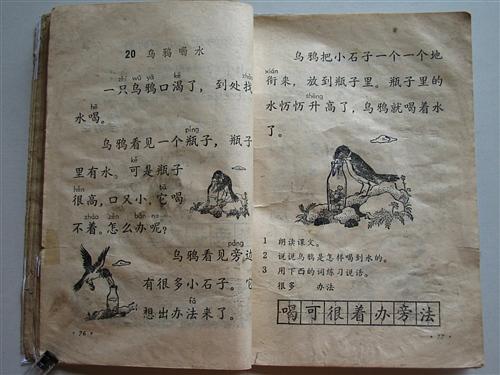 20 乌鸦喝水
zhī wū yā kě
一只乌鸦口渴了，到处找
hē
水喝。
píng
乌鸦看见一个瓶子，瓶子
kě
里有水。可是瓶子
hěn
很高，口又小，它喝
zháo zěn bàn ne
不着。怎么办呢？
páng
乌鸦看见旁边
有很多小石子。它
fǎ
想出办法来了。
· 76 ·
乌鸦把小石子一个一个地
xián
衔来，放到瓶子里。瓶子里的
shēng
水 升高了，乌鸦就喝着水
了。
1 朗读课文。
2 说说乌鸦是怎样喝到水的。
3 用下面的词练习说话。
很多 办法
喝可很着办旁法
· 77 ·